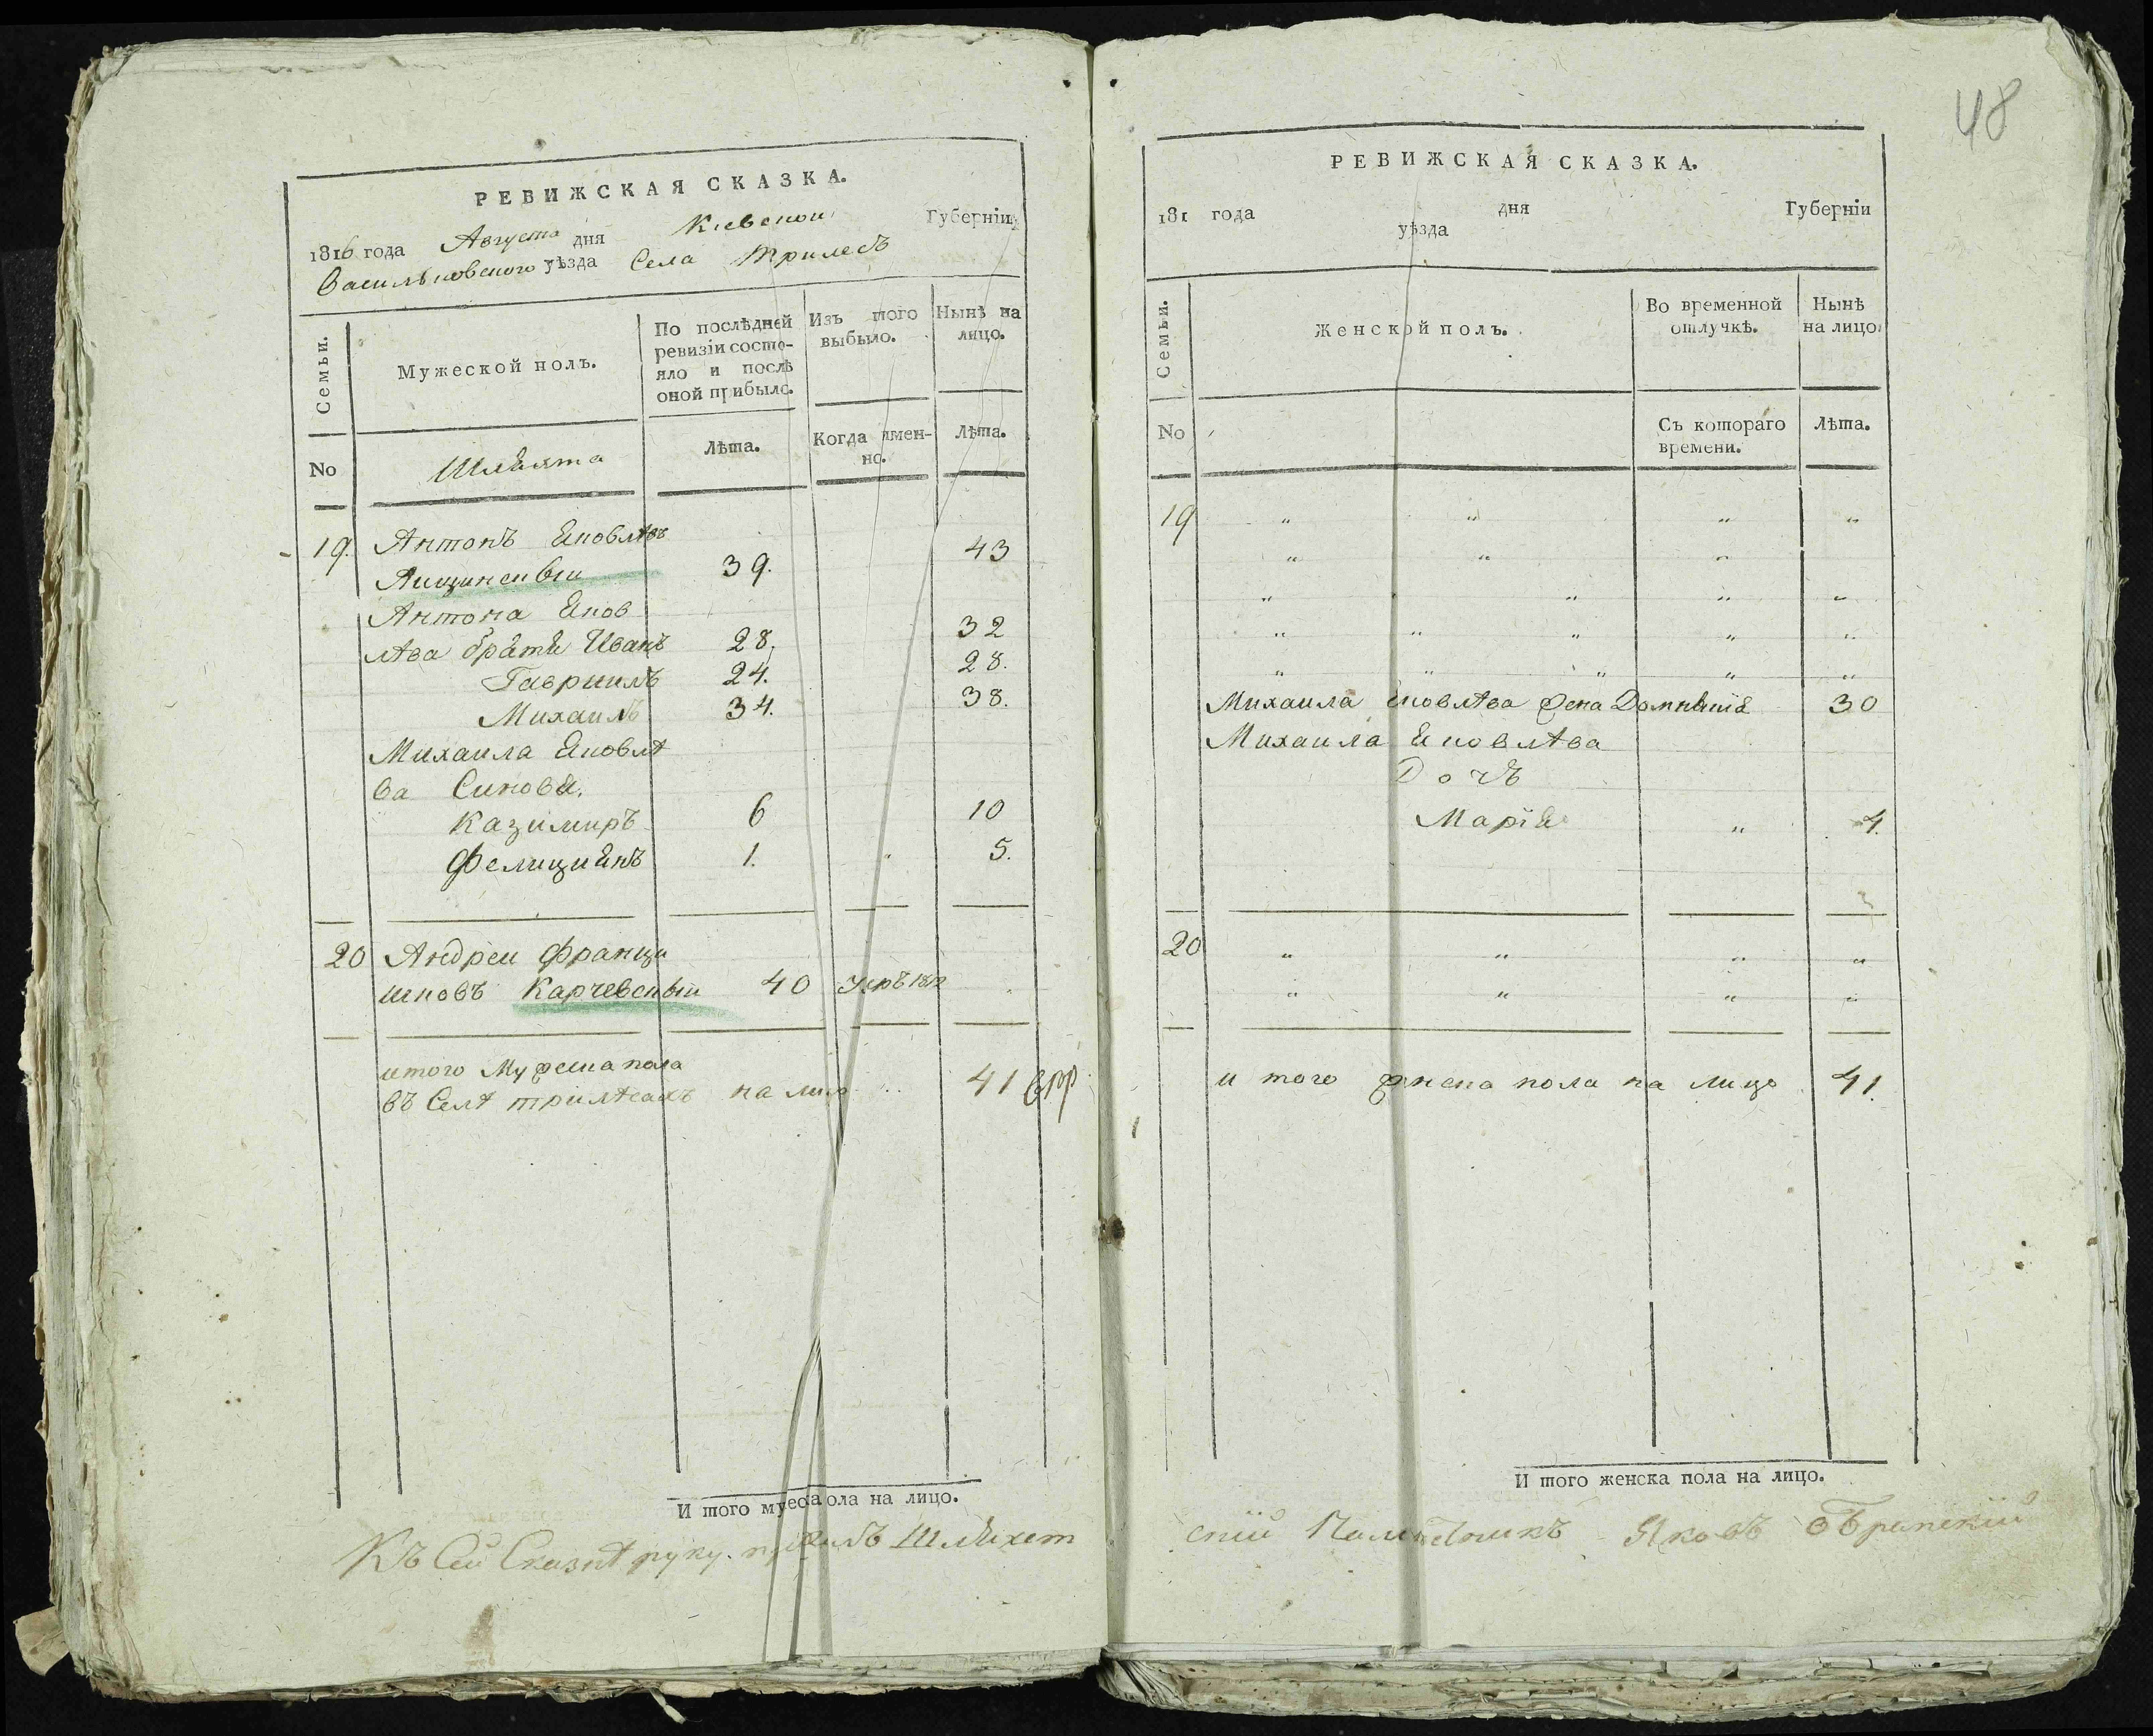 РЕВИЖСКАЯ СКАЗКА.
1816 года Августа дня Киевской Губерніи
Васильковского уѣзда Села Трилесъ
Семьи.
Мужеской полъ.
По послѣдней ревизіи состояло и послѣ оной прибыло.
Изъ того выбыло.
Нынѣ на лицо.
No
Шляхта
Лѣта.
Когда имен-
но.
Лѣта.
19. Антонъ Яковлѣвъ
39. 43
Антона Яков
лѣва братя Иванъ 28. 32
Гавриилъ 24. 28.
Михаилъ 34. 38.
Михаила Яковлѣ
ва Синовя.
Казимиръ 6 10
Фелициянъ 1. 5.
20 Андреи Франци
шковъ Карчевскыи 40 умръ 1812
итого Мужеска пола
въ Селѣ трилѣсахъ на лицо 41
И того муеска ола на лицо.
Къ Сей Сказкѣ руку Шляхет
48
РЕВИЖСКАЯ СКАЗКА.
181 года дня Губерніи
уѣзда
Семьи.
Женской полъ.
Во временной отлучкѣ.
Нынѣ на лицо.
No
Съ котораго времени.
Лѣта.
19 " " " "
" " "
" " " "
" " " " "
" " " " "
Михаила Яковлѣва жена 30
Михаила Яковлѣва
Дочъ
Марія " 4.
20 " " " "
" " " "
и того женска пола на лицо 41.
И того женска пола на лицо.
скій Яковъ